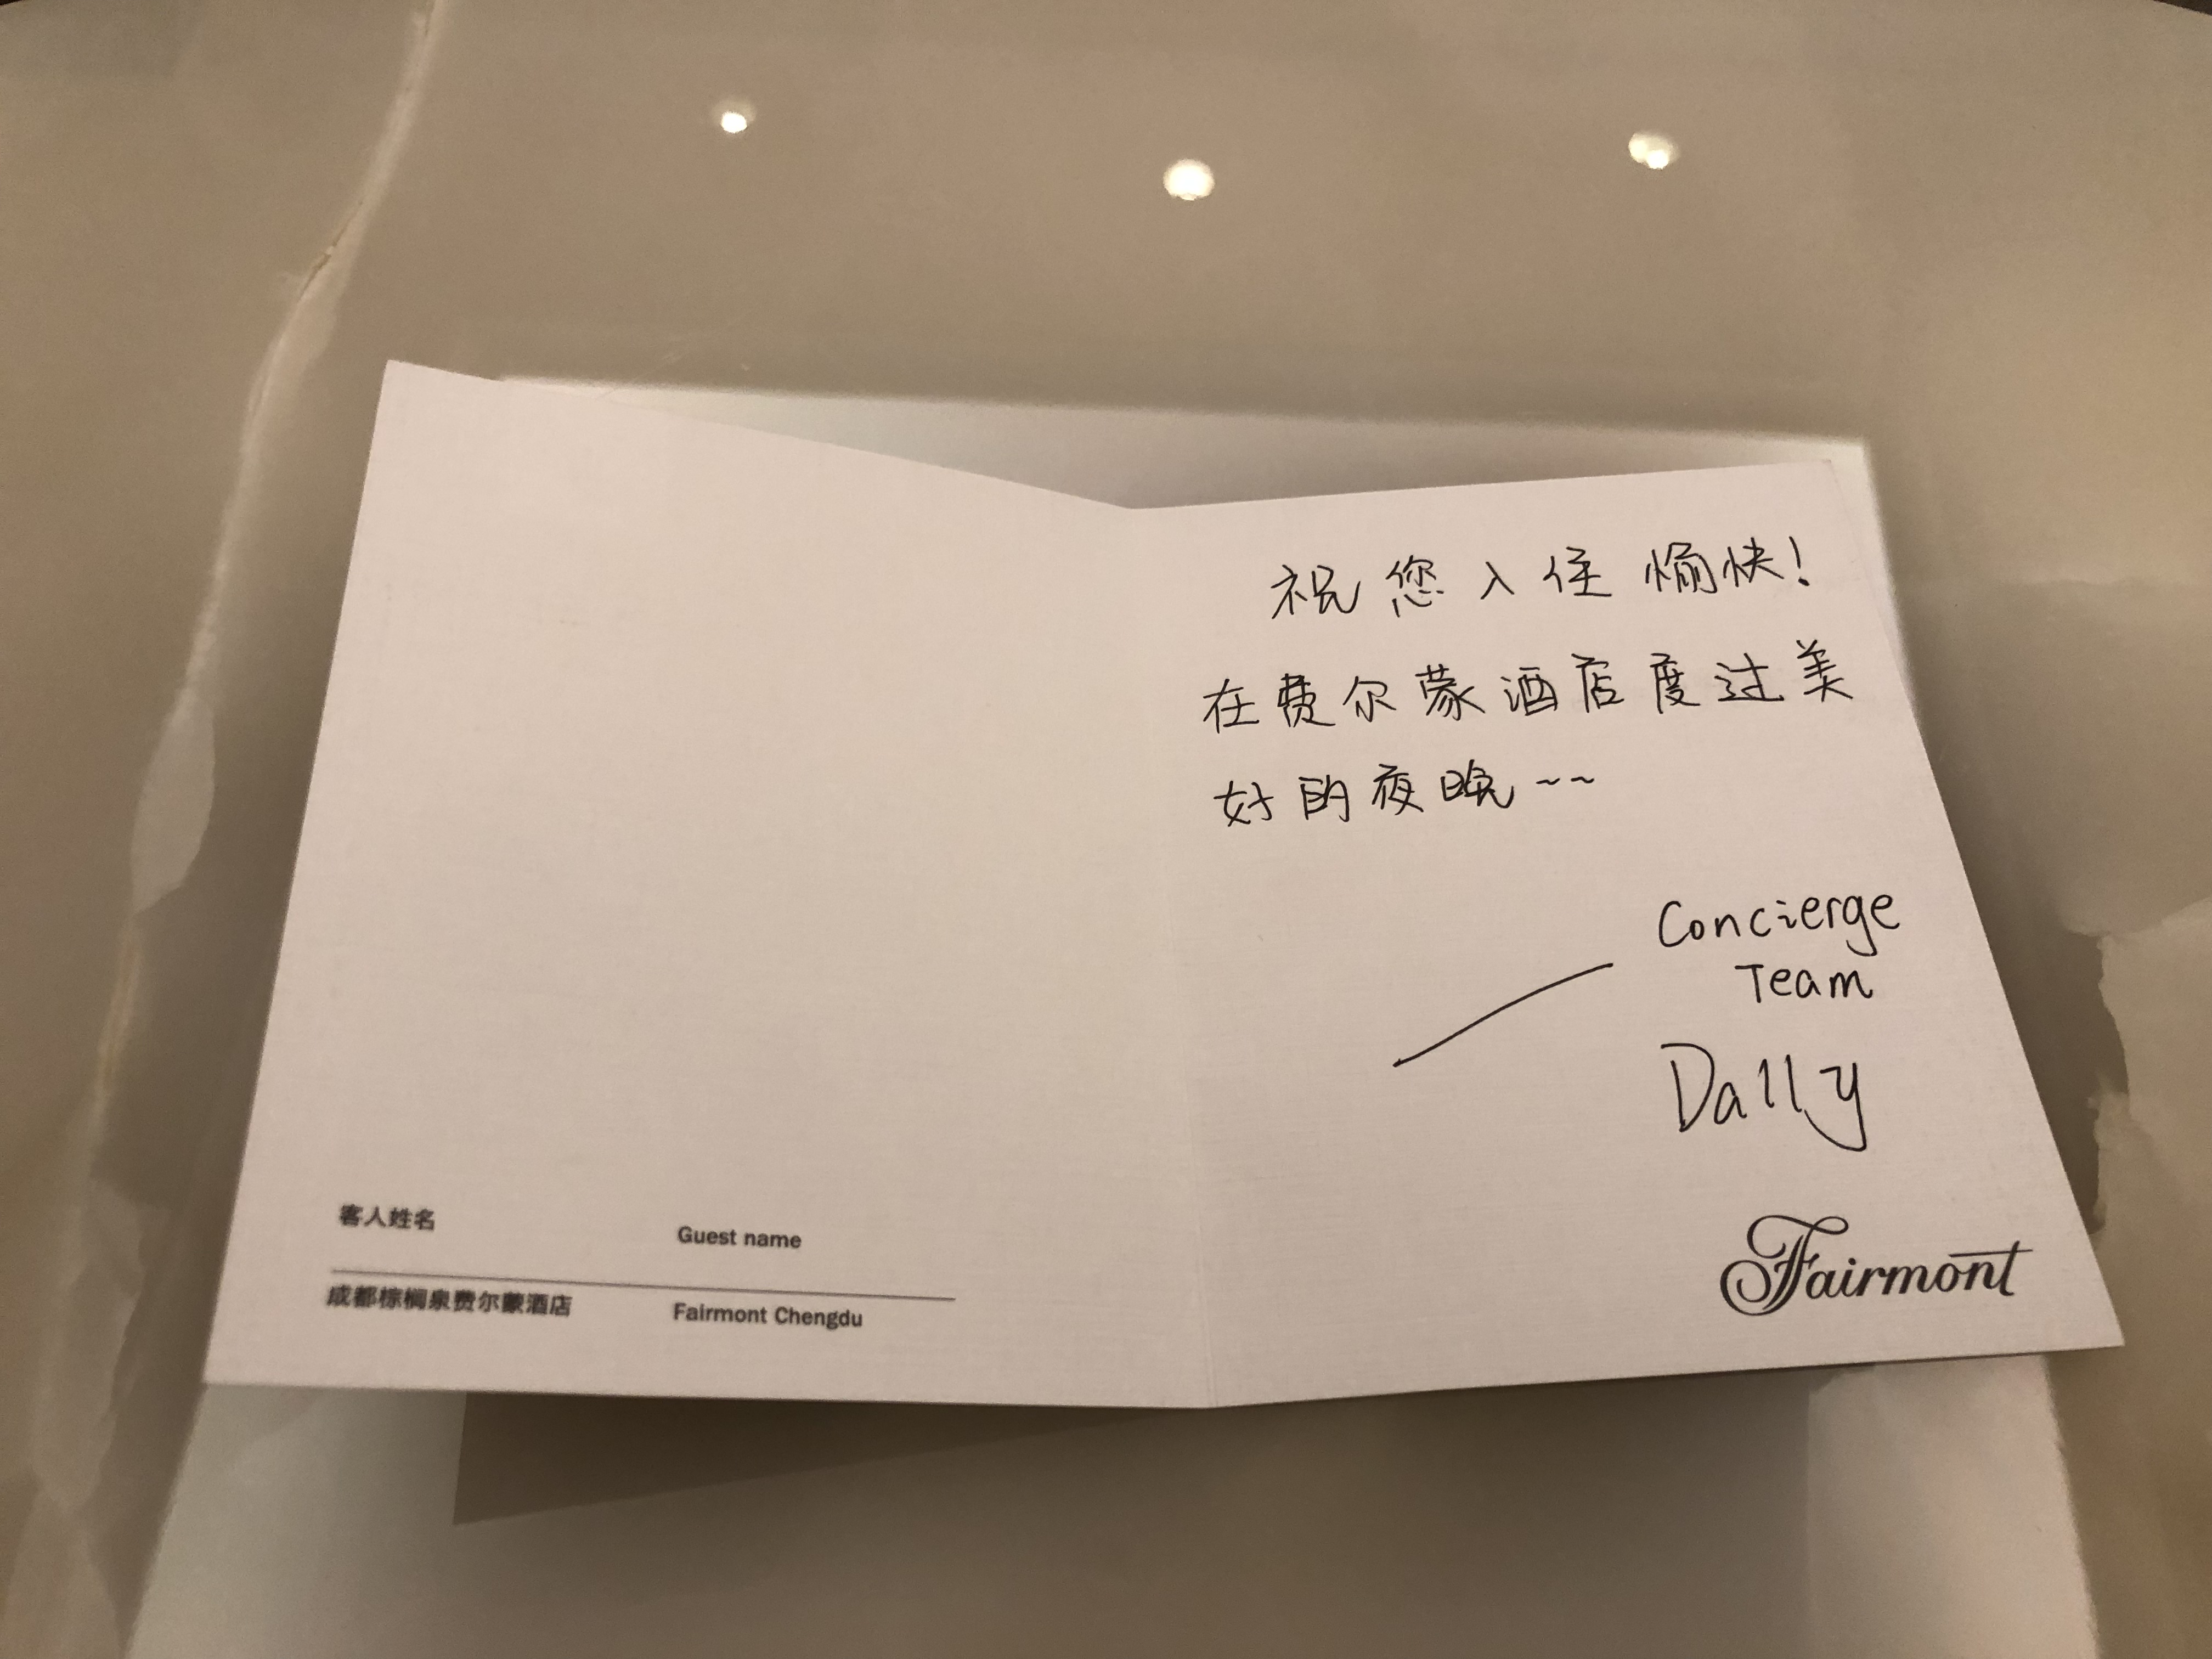 客人姓名 Guest name
成都棕榈泉费尔蒙酒店 Fairmont Chengdu
祝您入住愉快!
在费尔蒙酒店度过美
好的夜晚~~
Concierge
Team
Dally
Fairmont